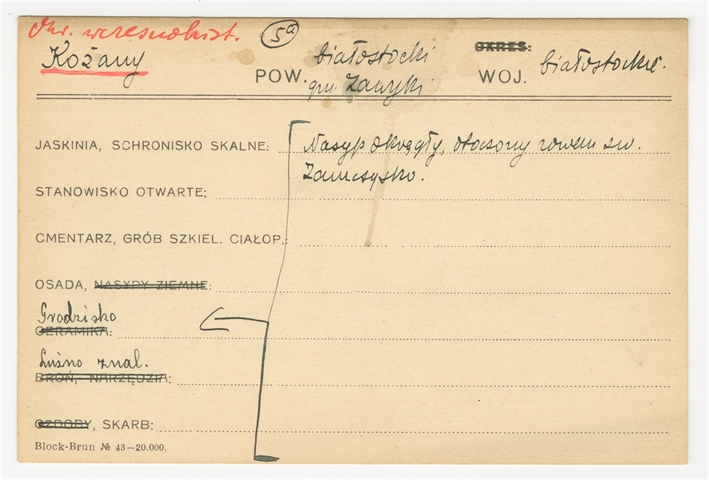 Okr. wczesnohist. 5a
Kożany
POW. białostocki
gm. Zawyki
OKRES:
WOJ. białostockie.
JASKINIA, SCHRONISKO SKALNE: Nasyp okrągły, otoczony rowem zw.
Zamczysko.
STANOWISKO OTWARTE:
CMENTARZ, GRÓB SZKIEL. CIAŁOP.:
OSADA, NASYPY ZIEMNE:
Grodzisko
CERAMIKA:
Luźno znal.
BROŃ, NARZĘDZIA:
OZDOBY, SKARB:
Block-Brun № 43—20.000.